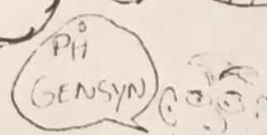 PÅ
GENSYN